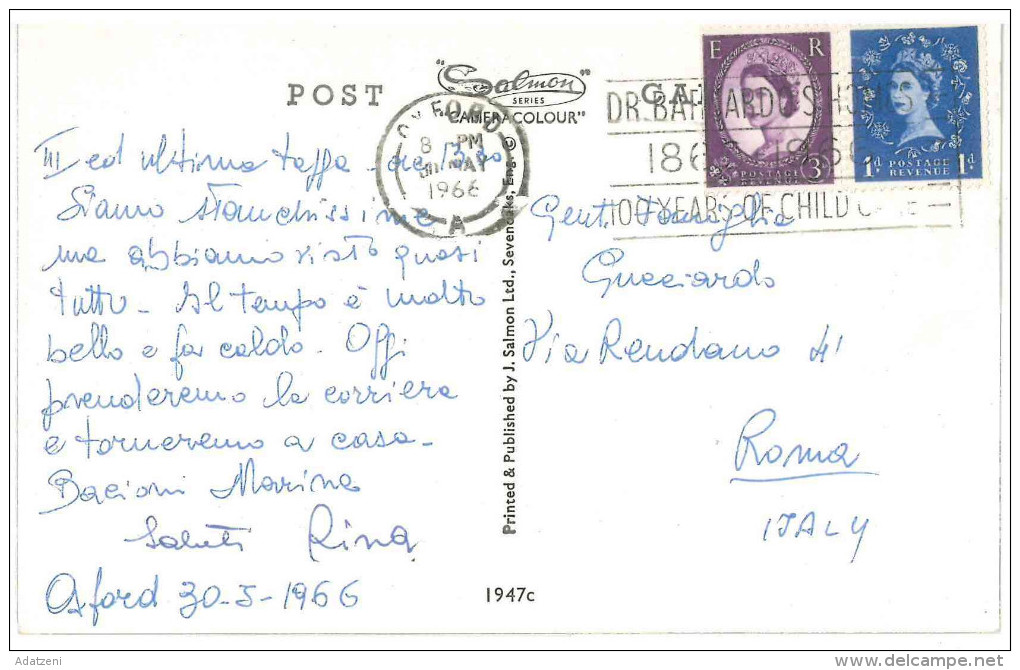 POST CARD
"Salmon"
SERIES
"CAMERACOLOUR"
OXFORD
8 PM
MAY
1966
A
DR. BARNARDO'S HOMES
1866 1966
100 YEARS OF CHILD CARE
E R
3D
POSTAGE
REVENUE
1D 1D
POSTAGE
REVENUE
III ed ultima tappa - ore 13.30
Siamo stanchissime
ma abbiamo visto quasi
tutto - Il tempo è molto
bello e fa caldo. Oggi
prenderemo la corriera
e torneremo a casa -
Bacioni Marina
Saluti Rina
Oxford 30-5-1966
Gent. Famiglia
Gucciardo
Via Rendano 41
Roma
ITALY
Printed & Published by J. Salmon Ltd., Sevenoaks, Eng. ©
1947c
Adatzeni
delcampe.net